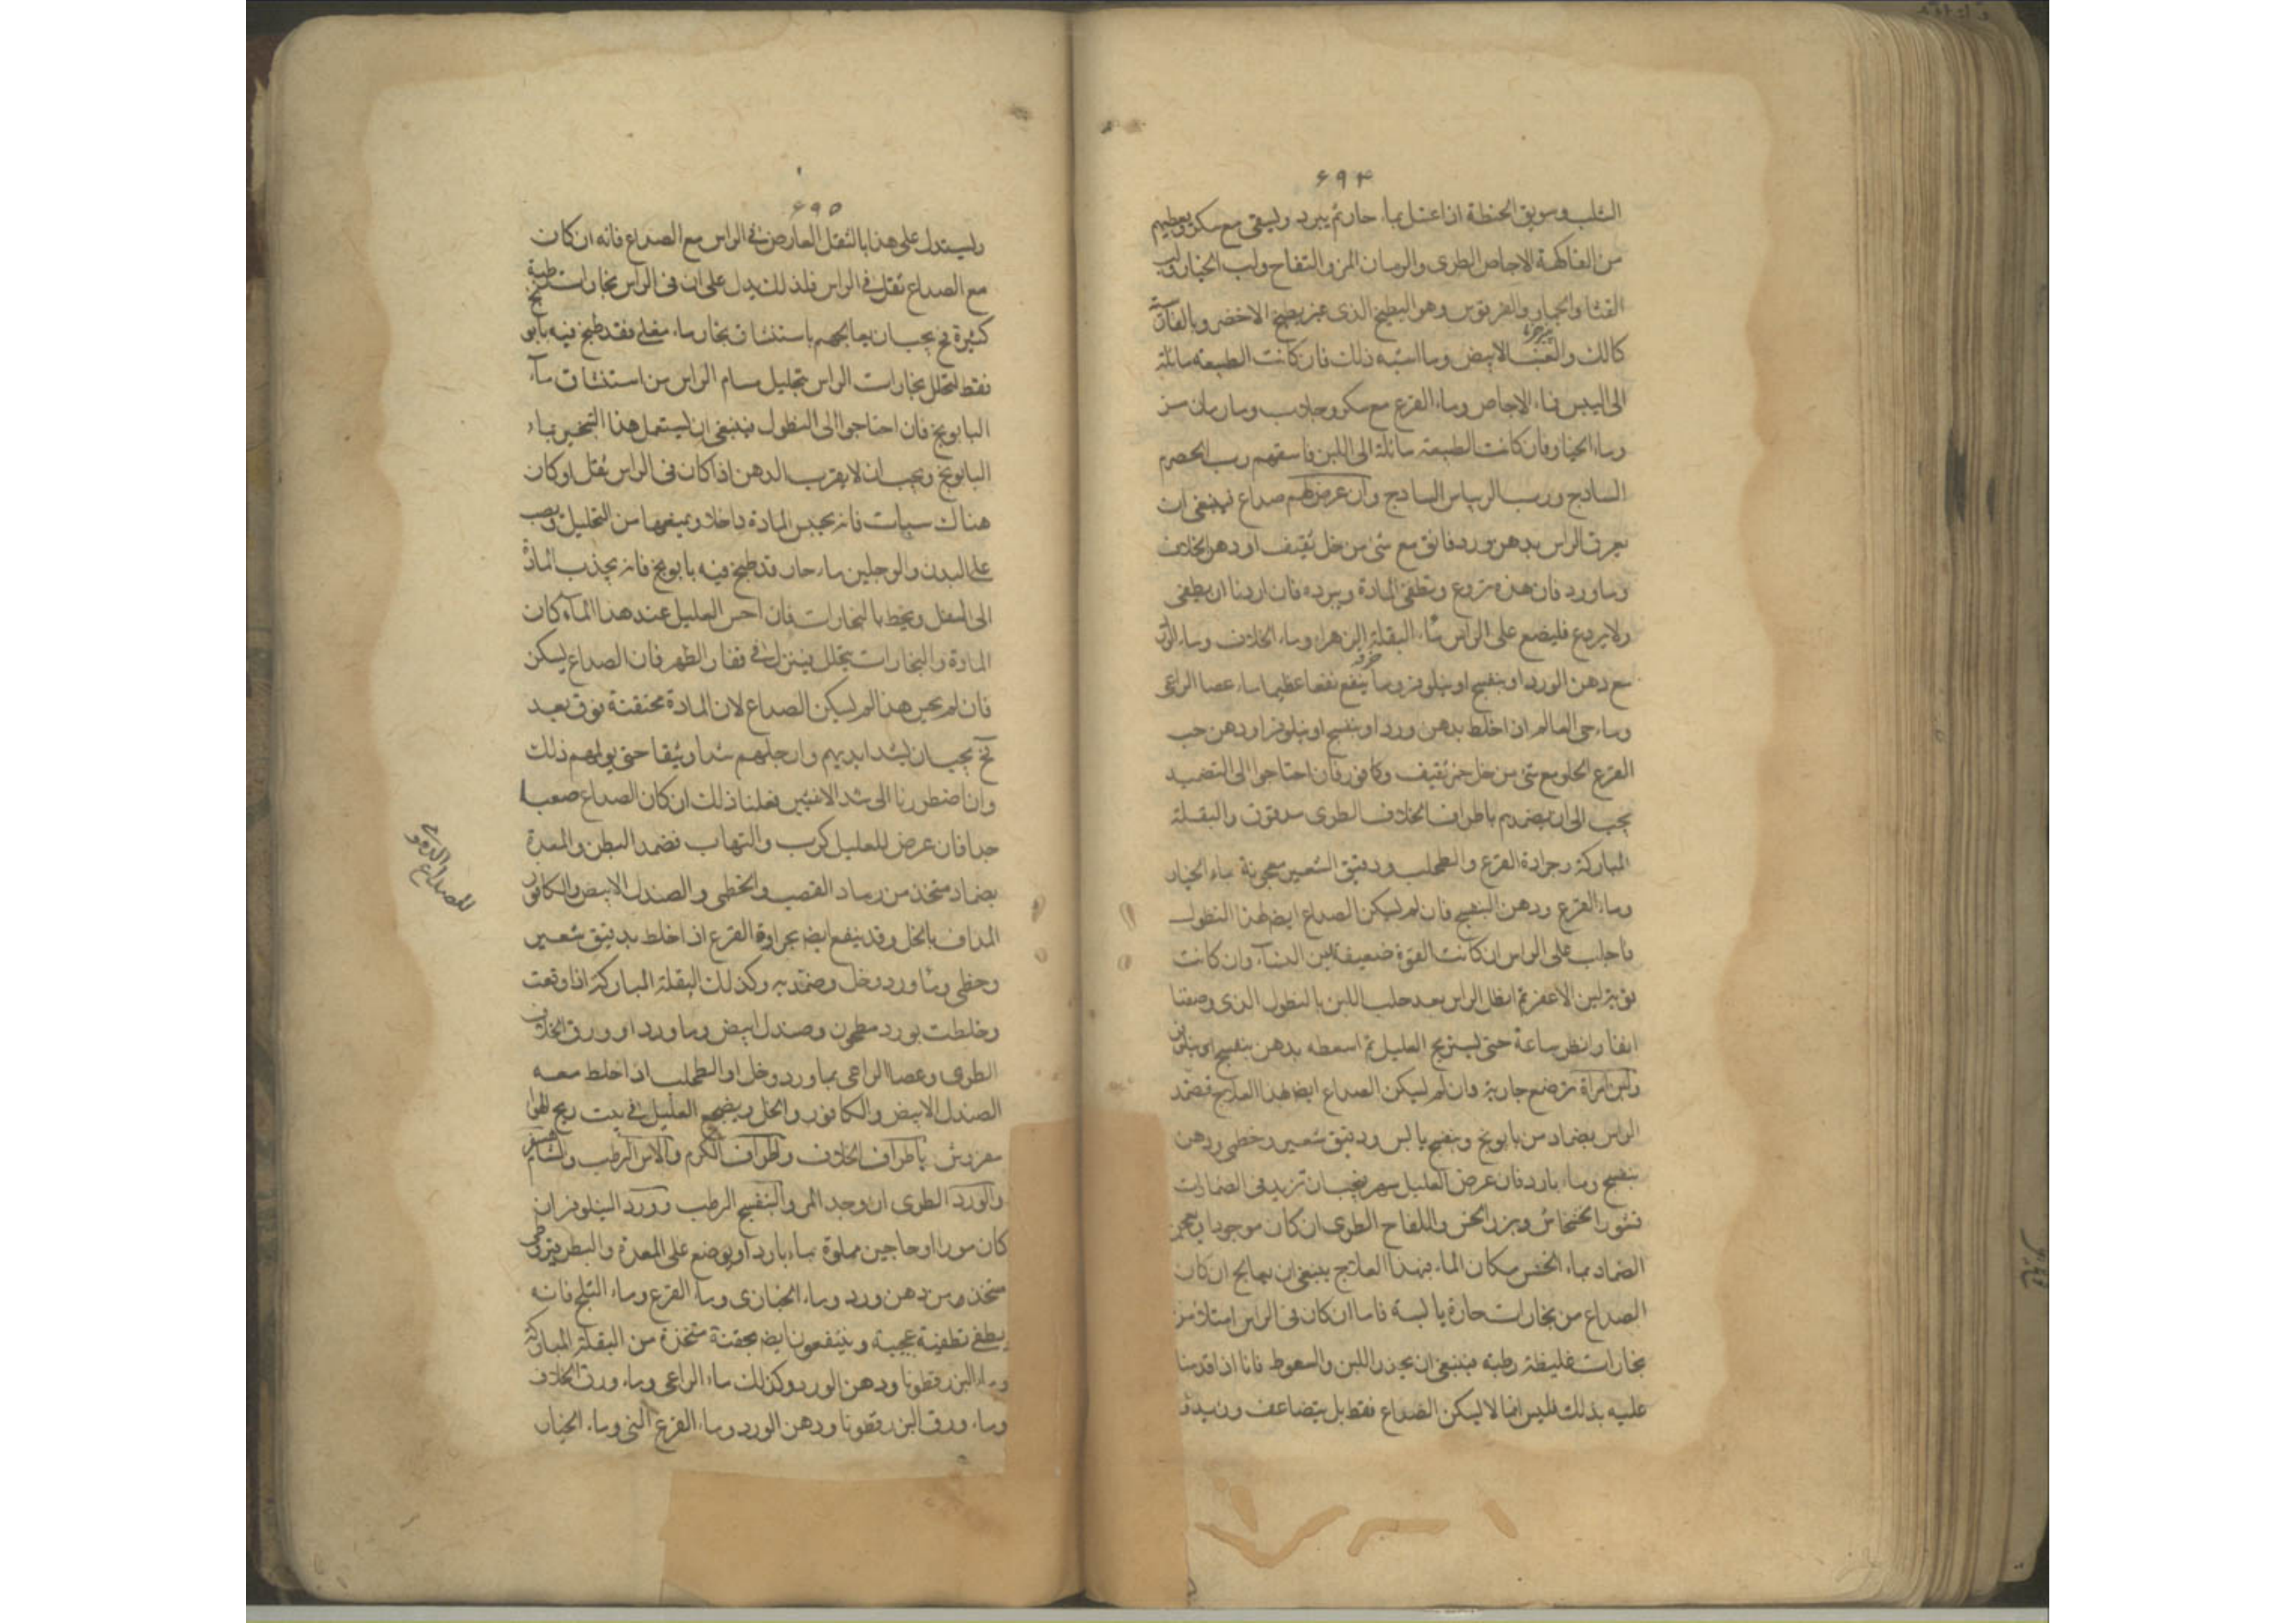 ۶۹۴
الثلب وسويق الحنطة اذا غسل بماء حار ثم يبرد ويسقى مع سكر ويعطيهم
من الفاكهة الاجاص الطرى والرمان المز والتفاح ولب الخيار ولب
القثا والخيار والقريوس وهو البطيخ الذى غير بطيخ الاخضر وبالفارسية
كالك والعنب الابيض وما اشبه ذلك فان كانت الطبيعه مائلة
الى اليبس فماء الاجاص وماء القرع مع سكر وجلاب وماء رمان مز
وماء الخيار وان كانت الطبيعة مائلة الى اللين فاسقهم رب الحصرم
الساذج ورب الريباس الساذج وان عرض لهم صداع فينبغى ان
يعرق الراس بدهن ورد فائق مع شئ من خل ثقيف او دهن الخلاف
وماورد فان هذه تردع وتطفئ المادة ويبرده فان اردنا ان يطفى
ولا يردع فليضع على الراس ماء البقلة الزهراء وماء الخلاف وماء الورد
مع دهن الورد او بنفسج او نيلوفر ومما ينفع نفعا عظيما ماء عصا الراعى
وماء حى العالم اذا خلط بدهن ورد او بنفسج او نيلوفر او دهن حب
القرع الحلو مع شئ من خل خمر ثقيف وكافور فان احتاجوا الى التضميد
يجب الى ان يضمدهم باطراف الخلاف الطرى مدقوق والبقلة
المباركة وجرادة القرع والطحلب ودقيق الشعير معجونة بماء الخيار
وماء القرع ودهن البنفسج فان لم يسكن الصداع ايضا بهذا النطول
فاحلب على الراس ان كانت القوة ضعيفة لبن النساء وان كانت
قوية لبن الاعنز ثم انطل الراس بعد حلب اللبن بالنطول الذى وصفنا
انفا وانظر ساعة حتى يستريح العليل ثم اسعطه بدهن بنفسج او نيلوفر
ولبن امراة ترضع جارية وان لم يسكن الصداع ايضا بهذا العلاج فضمد
الراس بضماد من بابونج وبنفسج يابس ودقيق شعير وخطمى ودهن
بنفسج وماء بارد فان عرض للعليل سهر فيجب ان تزيد فى الضمادات
قشور الخشخاش وبزر الخس واللفاح الطرى ان كان موجودا ويعجن
الضماد بماء الخس مكان الماء فبهذا العلاج ينبغى ان يعالج ان كان
الصداع من بخارات حارة يابسة فاما ان كان فى الراس امتلاء من
بخارات غليظة رطبه فينبغى ان يحذر اللبن والسعوط فانا اذا قدمنا
عليه بذلك فليس انما لا يسكن الصداع فقط بل يتضاعف ويزيد
۶۹۵
ويستدل على هذا بالثقل العارض فى الراس مع الصداع فانه ان كان
مع الصداع ثقل فى الراس فلذلك يدل على ان فى الراس بخارات رطبة
كثيرة فح يجب ان يعالجهم باستنشاق بخار ماء مغلى فقد طبخ فيه بابونج
فقط لتحلل بخارات الراس بتحليل مسام الراس من استنشاق ماء
البابونج فان احتاجوا الى النطول فينبغى ان يستعمل هذا التبخير بماء
البابونج ويجب ان لا يقرب الدهن اذا كان فى الراس ثقل او كان
هناك سبات فانه يحبس المادة داخلا ويمنعها من التحليل ويصب
على البدن والرجلين ماء حار قد طبخ فيه بابونج فانه يجذب المادة
الى اسفل ويحط بالبخارات فان احس العليل عند هذا الماء كان
المادة والبخارات يتحلل ينزل فى فقار الظهر فان الصداع يسكن
فان لم يحس هذا لم يسكن الصداع لان المادة محتقنة فوق بعد
فح يجب ان يشد ايديهم وارجلهم شدا وثيقا حتى يولمهم ذلك
وان اضطررنا الى شد الانثيين فعلنا ذلك ان كان الصداع صعبا
جدا فان عرض للعليل كرب والتهاب فضمد البطن والمعدة
بضماد متخذ من رماد القصب والخطمى والصندل الابيض والكافور
المداف بالخل وقد ينفع ايضا بجرادة القرع اذا خلط بدقيق شعير
وخطمى وماورد وخل وضمد به وكذلك البقلة المباركة اذا دقت
وخلطت بورد مطحون وصندل ابيض وماورد او ورق الخلاف
الطرى وعصا الراعى بماورد وخل او الطحلب اذا خلط معه
الصندل الابيض والكافور والخل ويضجع العليل فى بيت ريح الهواء
مفروش باطراف الخلاف واطراف الكرم والاس الرطب والشاهسفرم
والورد الطرى ان وجد المى والبنفسج الرطب وورد النيلوفر ان
كان موردا وحاجين مملوة بماء بارد او يوضع على المعدة والبطن قيروطى
متخذ من دهن ورد وماء الخبازى وماء القرع وماء الثلج فانه
يطفئ تطفية عجيبة وينتفعون ايضا بحقنة متخذة من البقلة المباركة
وماء البزرقطونا ودهن الورد وكذلك ماء الراعى وماء ورق الخلاف
وماء ورق البزرقطونا ودهن الورد وماء القرع النى وماء الخيار
للصداع الدموى